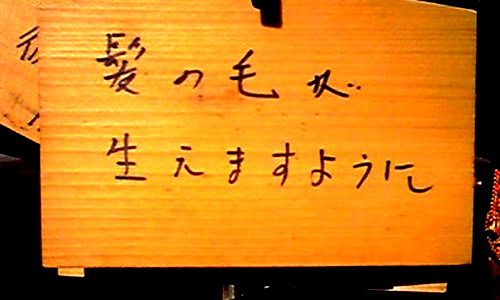 髪の毛が
生えますように